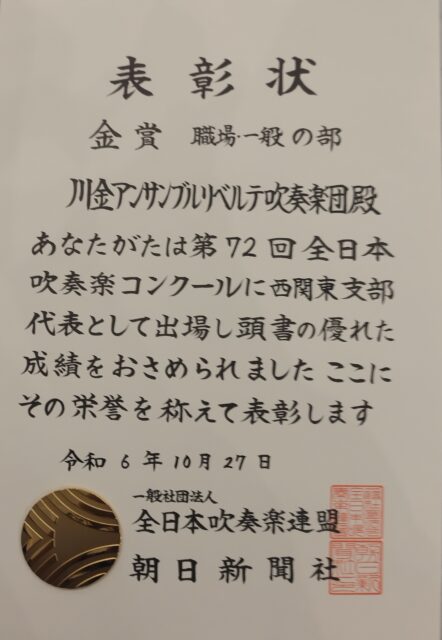 表彰状
金賞 職場・一般の部
川金アンサンブルリベルテ吹奏楽団殿
あなたがたは第72回全日本
吹奏楽コンクールに西関東支部
代表として出場し頭書の優れた
成績をおさめられました ここに
その栄誉を称えて表彰します
令和6年10月27日
一般社団法人
全日本吹奏楽連盟
朝日新聞社